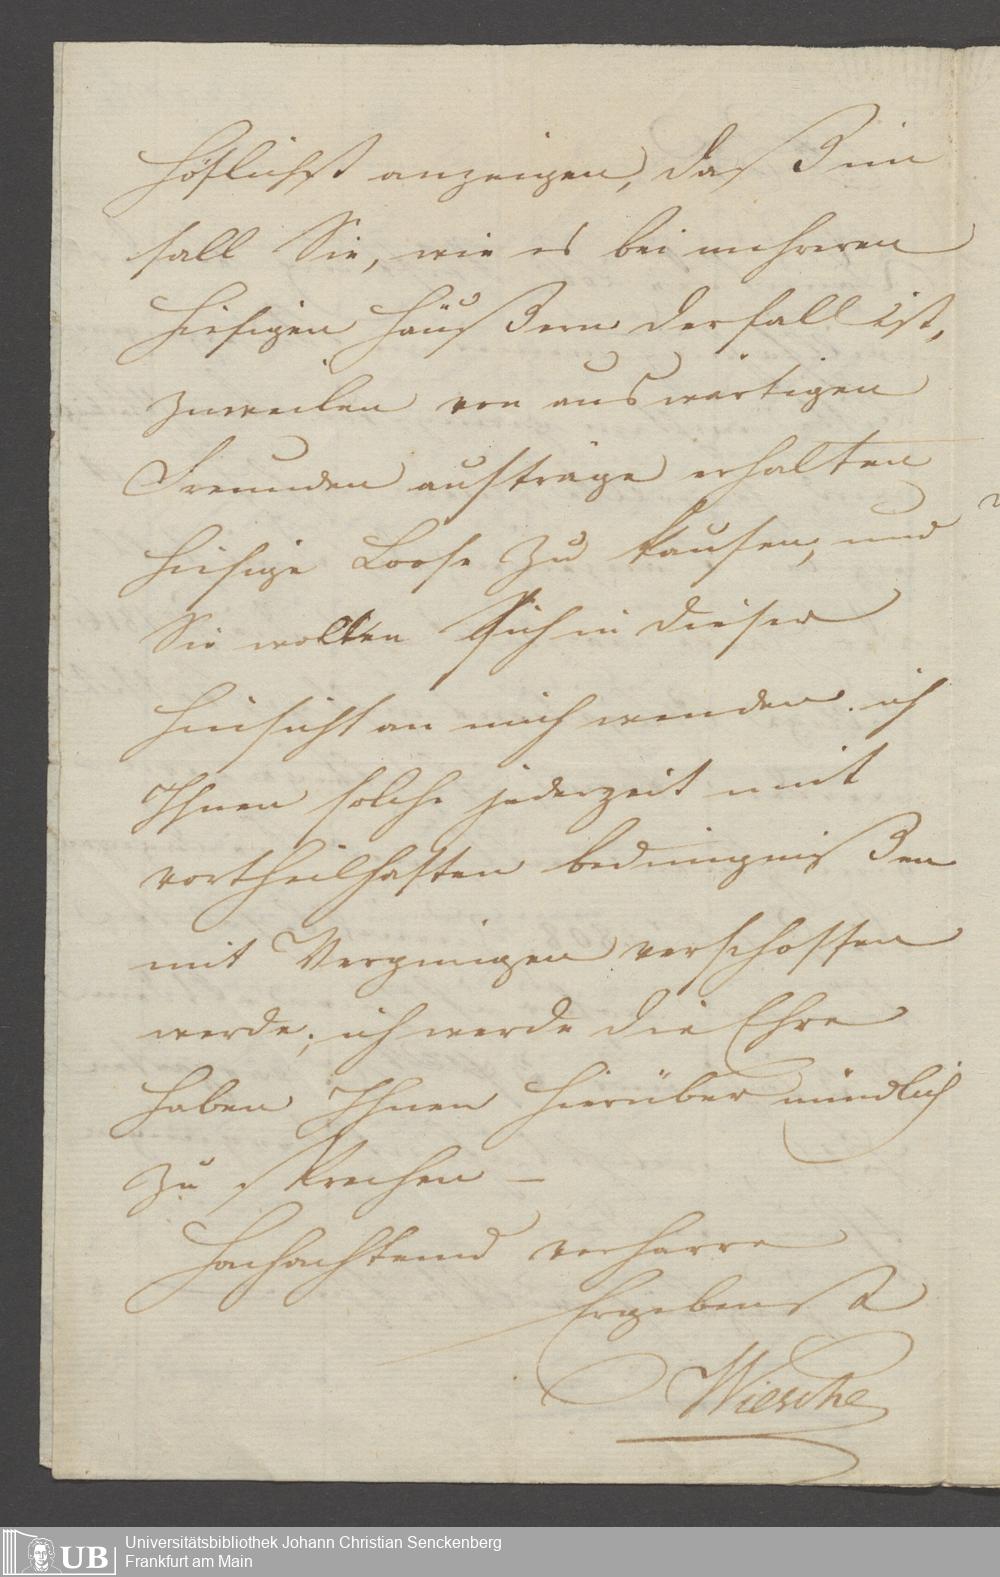 höflichst anzeigen, daß im
fall Sie, wie es bei mehreren
hiesigen Häußern der fall ist,
zuweilen von auswärtigen
Freunden aufträge erhalten
hiesige Loose zu kaufen, und
Sie wolten Sich in dieser
hinsicht an mich wenden. ich
Ihnen solche jederzeit mit
vortheilhaften bedingnißen
mit Vergnügen verschaffen
werde; ich werde die Ehre
haben Ihnen hierüber mündlich
zu sprechen –
Hochachtend verharre
Ergebenst
Wiesche
UB Universitätsbibliothek Johann Christian Senckenberg
Frankfurt am Main